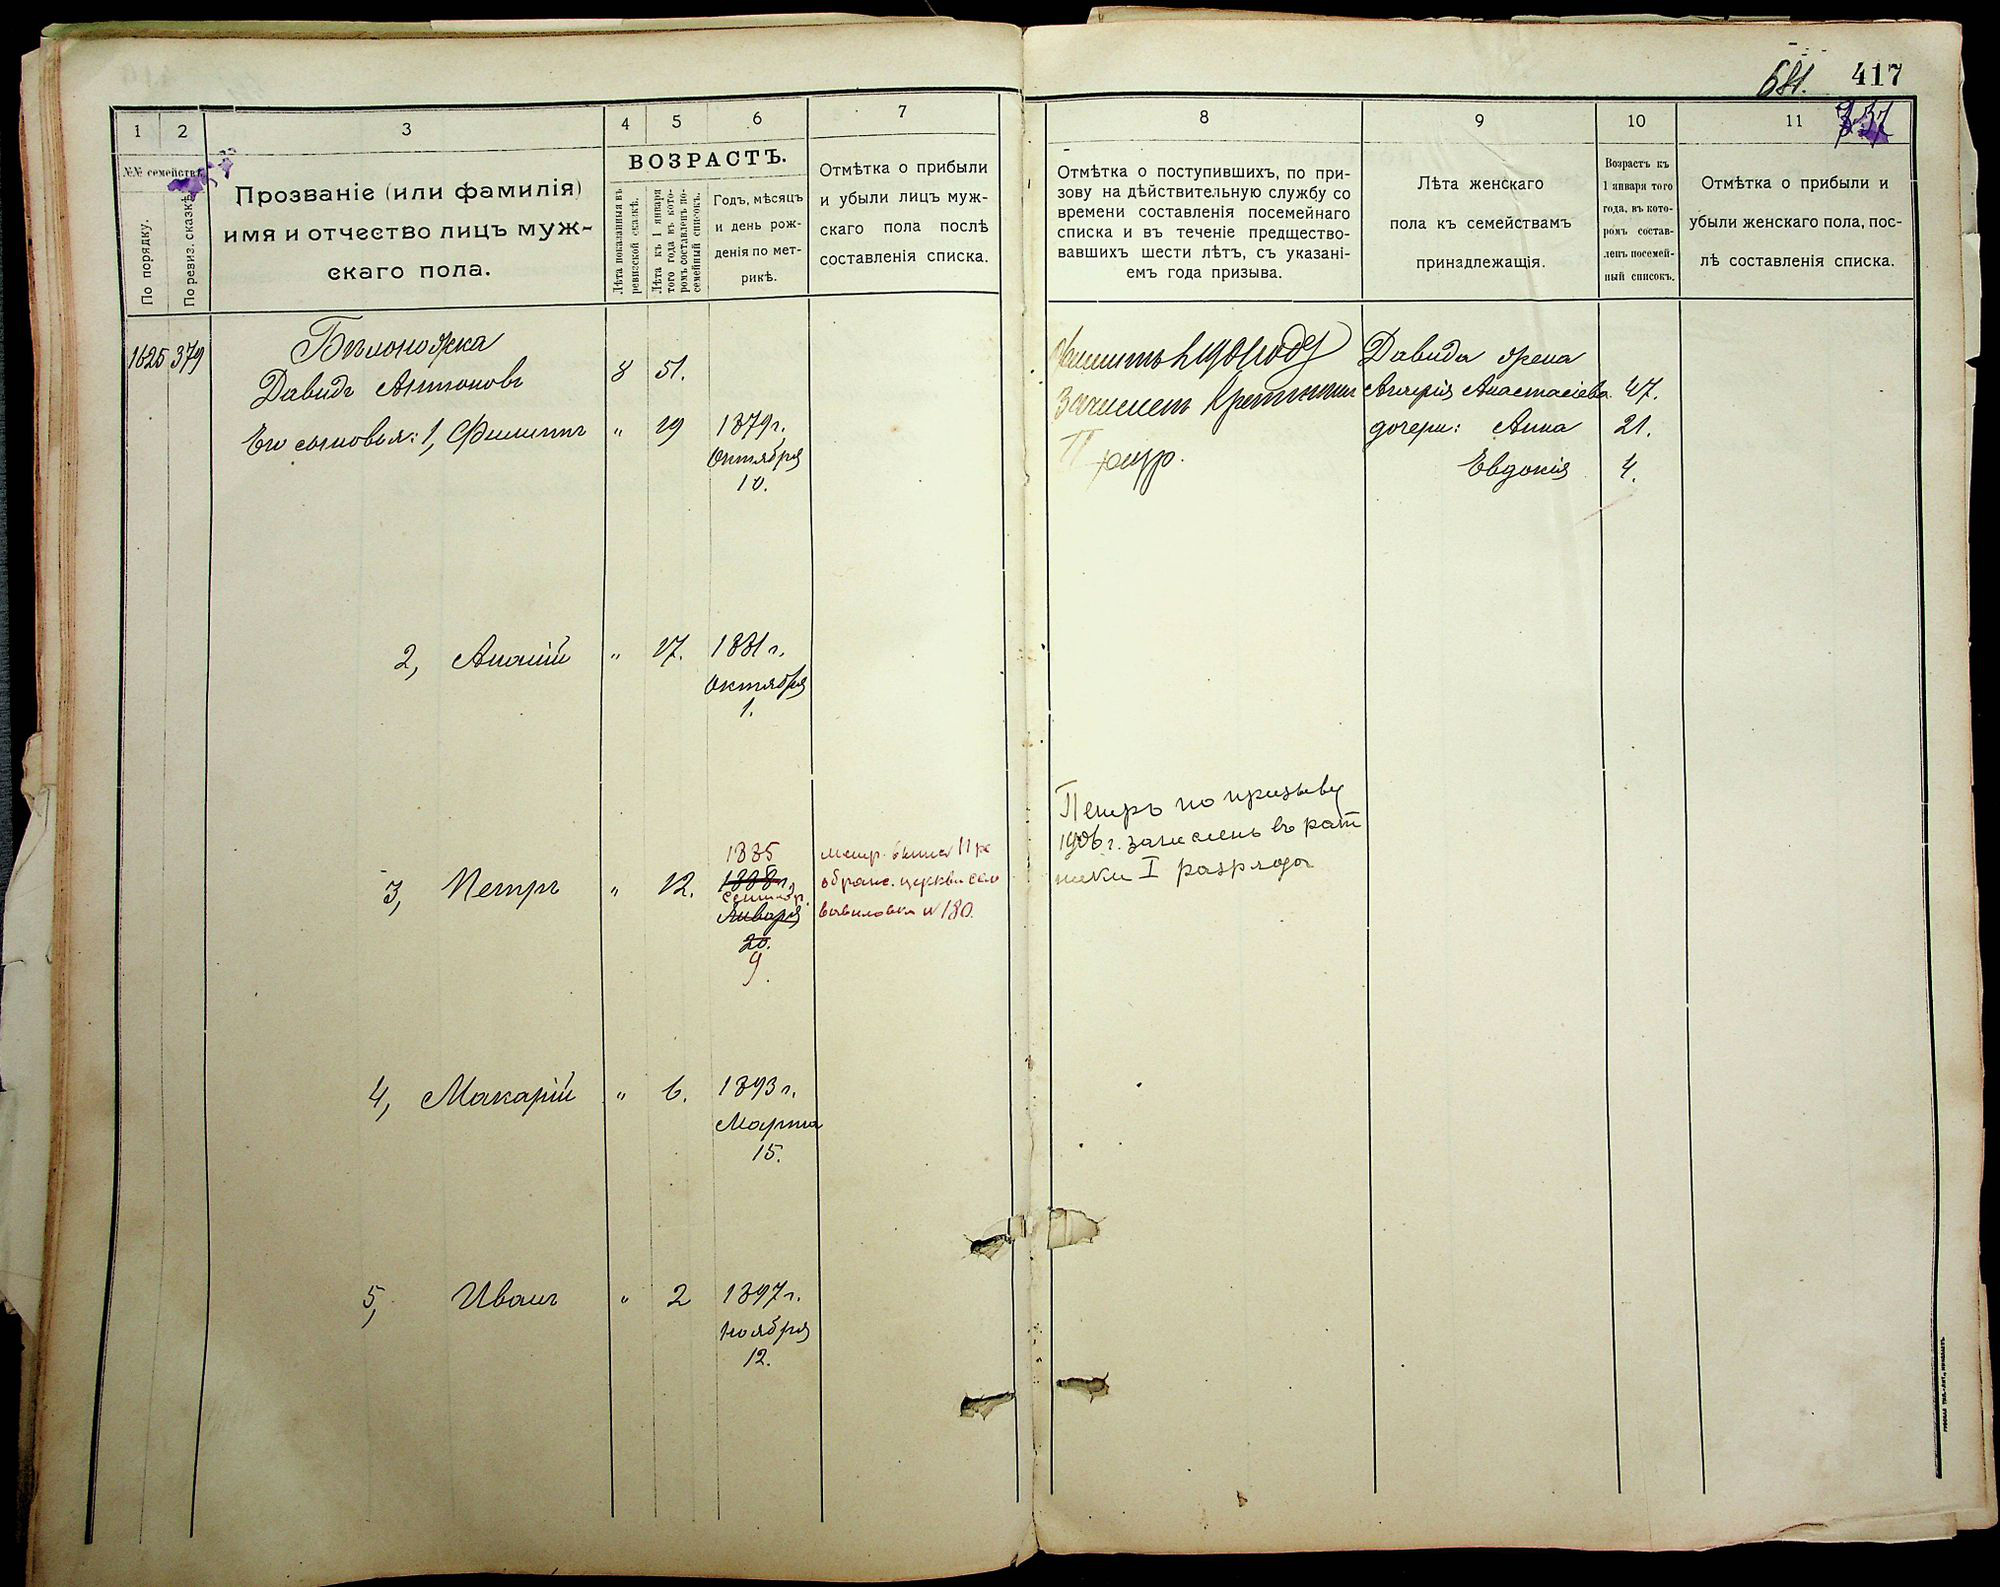 681. 417
1 2 3 4 5 6 7
№№ семействъ
По порядку.
По ревиз. сказкѣ.
Прозваніе (или фамилія)
имя и отчество лицъ муж-
скаго пола.
ВОЗРАСТЪ.
Лѣта показанныя въ
ревизской сказкѣ.
Лѣта къ 1 января
того года въ кото-
ромъ составленъ по-
семейный списокъ.
Годъ, мѣсяцъ
и день рож-
денія по мет-
рикѣ.
Отмѣтка о прибыли
и убыли лицъ муж-
скаго пола послѣ
составленія списка.
1625 379
Бѣлоножка
Давидъ Антоновъ 8 51.
Его сыновья: 1, Филиппъ " 19 1879 г.
Октября
10.
2, Ананій " 17. 1881 г.
Октября
1.
1885
3, Петръ " 12. 1888 г.
Сентябр.
Января
20.
9
метр. выпис Пре
ображ. церкви сел
вавиловки № 180.
4, Макарій " 6. 1893 г.
Марта
15.
5, Иванъ " 2 1897 г.
Ноября
12.
8 9 10 11
Отмѣтка о поступившихъ, по при-
зову на дѣйствительную службу со
времени составленія посемейнаго
списка и въ теченіе предшество-
вавшихъ шести лѣтъ, съ указані-
емъ года призыва.
Лѣта женскаго
пола къ семействамъ
принадлежащія.
Возрастъ къ
1 января того
года, въ кото-
ромъ состав-
ленъ посемей-
ный списокъ.
Отмѣтка о прибыли и
убыли женскаго пола, пос-
лѣ составленія списка.
Филиппъ
Зачисленъ
II разр.
Петръ по призыву
1906 г. зачисленъ въ рат
ники I разряда
Давида жена
Анастасіева 47.
дочери: Анна 21.
Евдокія 4.